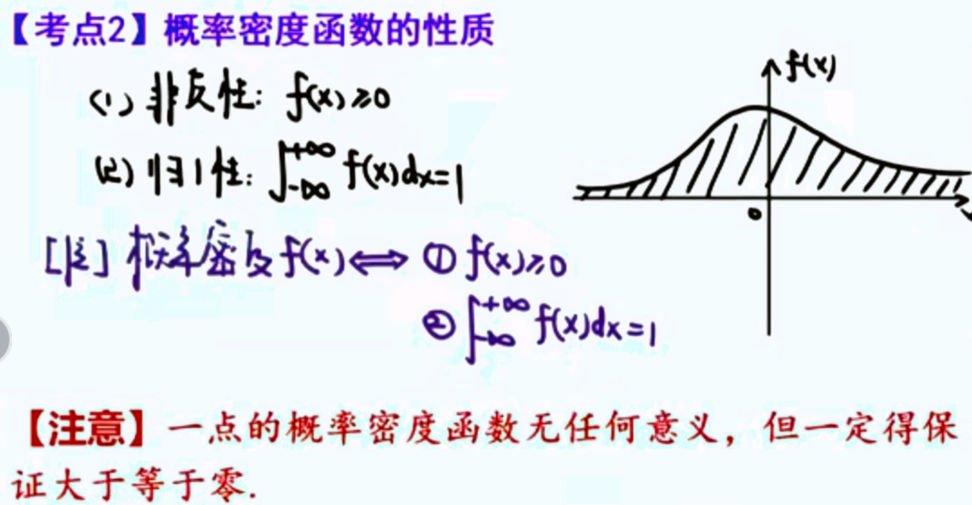 【考点2】概率密度函数的性质
(1) 非负性: f(x)≥0
(2) 归1性: ∫_{-∞}^{+∞} f(x)dx=1
[注] 概率密度 f(x) ⟺ ① f(x)≥0
② ∫_{-∞}^{+∞} f(x)dx=1
f(x)
0
x
【注意】一点的概率密度函数无任何意义，但一定得保
证大于等于零.